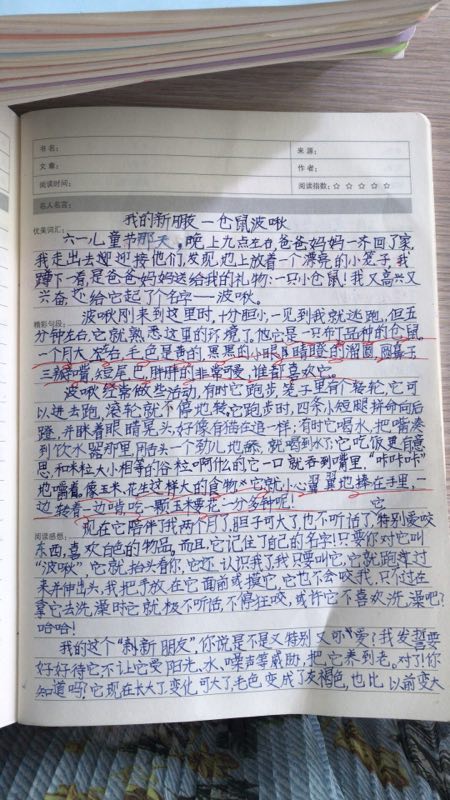 书名:
来源:
文章:
作者:
阅读时间:
阅读指数: ☆ ☆ ☆ ☆ ☆
名人名言:
我的新朋友—仓鼠波啾
优美词汇:
六一儿童节那天,晚上九点左右,爸爸妈妈一齐回了家。
我走出去迎接他们,发现地上放着一个漂亮的小笼子,我
蹲下一看,是爸爸妈妈送给我的礼物:一只小仓鼠!我又高兴又
兴奋,还给它起了个名字——波啾。
波啾刚来到这里时,十分胆小,一见到我就逃跑,但五
精彩句段:
分钟左右,它就熟悉这里的环境了。它是一只布丁品种的仓鼠
一个月大左右,毛色是黄的,黑黑的小眼睛
三瓣嘴,短尾巴,胖胖的非常可爱,谁都喜欢它。
波啾经常做些活动,有时它跑步,笼子里有个轮,它可
以进去跑,滚轮就不停地转,它跑步时,四条小短腿拼命向后
蹬,并眯着眼晴晃头,好像有猫在追一样;有时它喝水,把嘴凑
到饮水器那里,用舌头一个劲儿地舔,就喝到水了;它吃饭更有意
思,和米粒大小相等的谷粒啊什么的它一口就吞到嘴里,“咔咔咔”
地嚼着,像玉米、花生这样大的食物,它就小心翼翼地捧在手里,一
边转着一边啃,吃一颗玉米要花一分多钟呢!
现在它陪伴了我两个月了,胆子可大了,也不听话了,特别爱咬
阅读感想:
东西,喜欢白色的物品,而且,它记住了自己的名字!只要你对它叫
“波啾”,它就抬头看你,它还认识我了,我只要叫它,它就跑过
来并伸出头,我把手放在它面前或摸它,它也不会咬我,只不过在
拿它去洗澡时它就极不听话,不停狂咬,或许它不喜欢洗澡吧?
哈哈!
我的这个“新朋友”,你说是不是又特别又可爱?我发誓要
好好待它,不让它受阳光、水、噪声等威胁,把它养到老,对了!你
知道吗?它现在长大了,变化可大了,毛色变成了灰褐色,也比以前变大